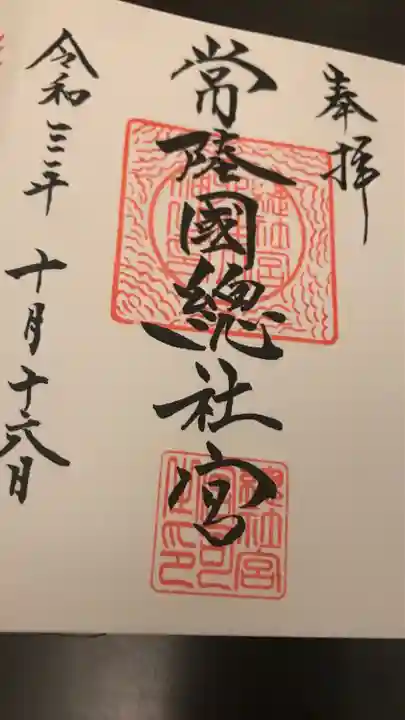 奉拝
常陸國總社宮
令和三年十月十六日
總社宮